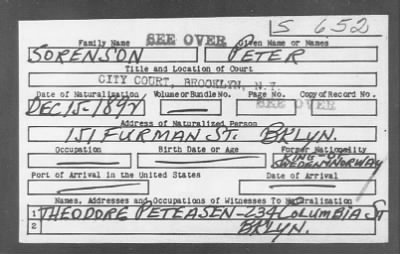 S 652
Family Name SEE OVER Given Name or Names
SORENSON PETER
Title and Location of Court
CITY COURT, BROOKLYN, N.Y.
Date of Naturalization Volume or Bundle No. Page No. Copy of Record No.
DEC 15-1892 SEE OVER
Address of Naturalized Person
151 FURMAN ST. BKLYN.
Occupation Birth Date or Age Former Nationality
KING OF
SWEDEN & NORWAY
Port of Arrival in the United States Date of Arrival
Names, Addresses and Occupations of Witnesses To Naturalization
1 THEODORE PETEASEN-234 COLUMBIA ST
2 BKLYN.